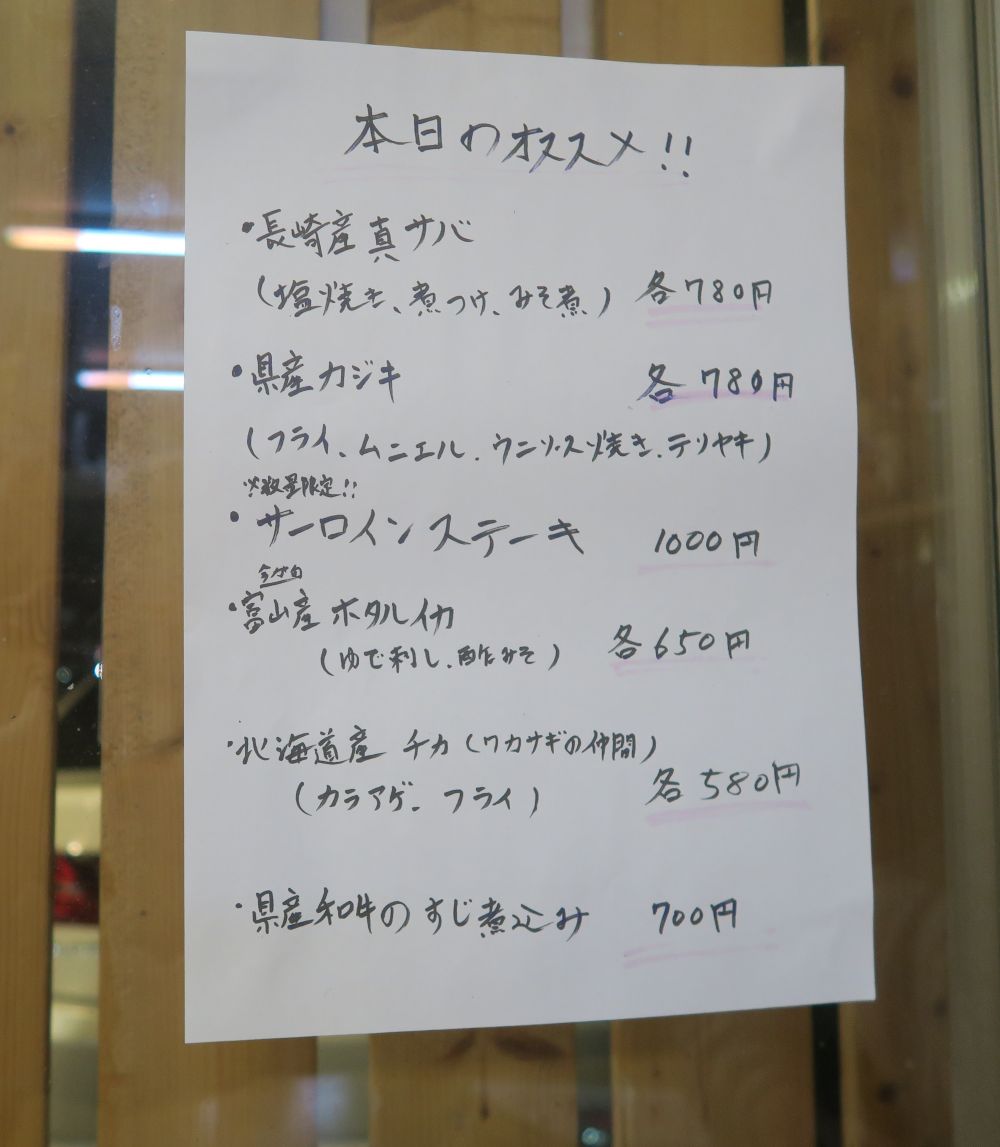 本日のオススメ!!
・長崎産真サバ
(塩焼き、煮つけ、みそ煮) 各780円
・県産カジキ 各780円
(フライ、ムニエル、ウニソース焼き、テリヤキ)
※数量限定!!
・サーロインステーキ 1000円
今が旬
・富山産ホタルイカ
(ゆで刺し、酢みそ) 各650円
・北海道産 チカ(ワカサギの仲間)
(カラアゲ、フライ) 各580円
・県産和牛のすじ煮込み 700円